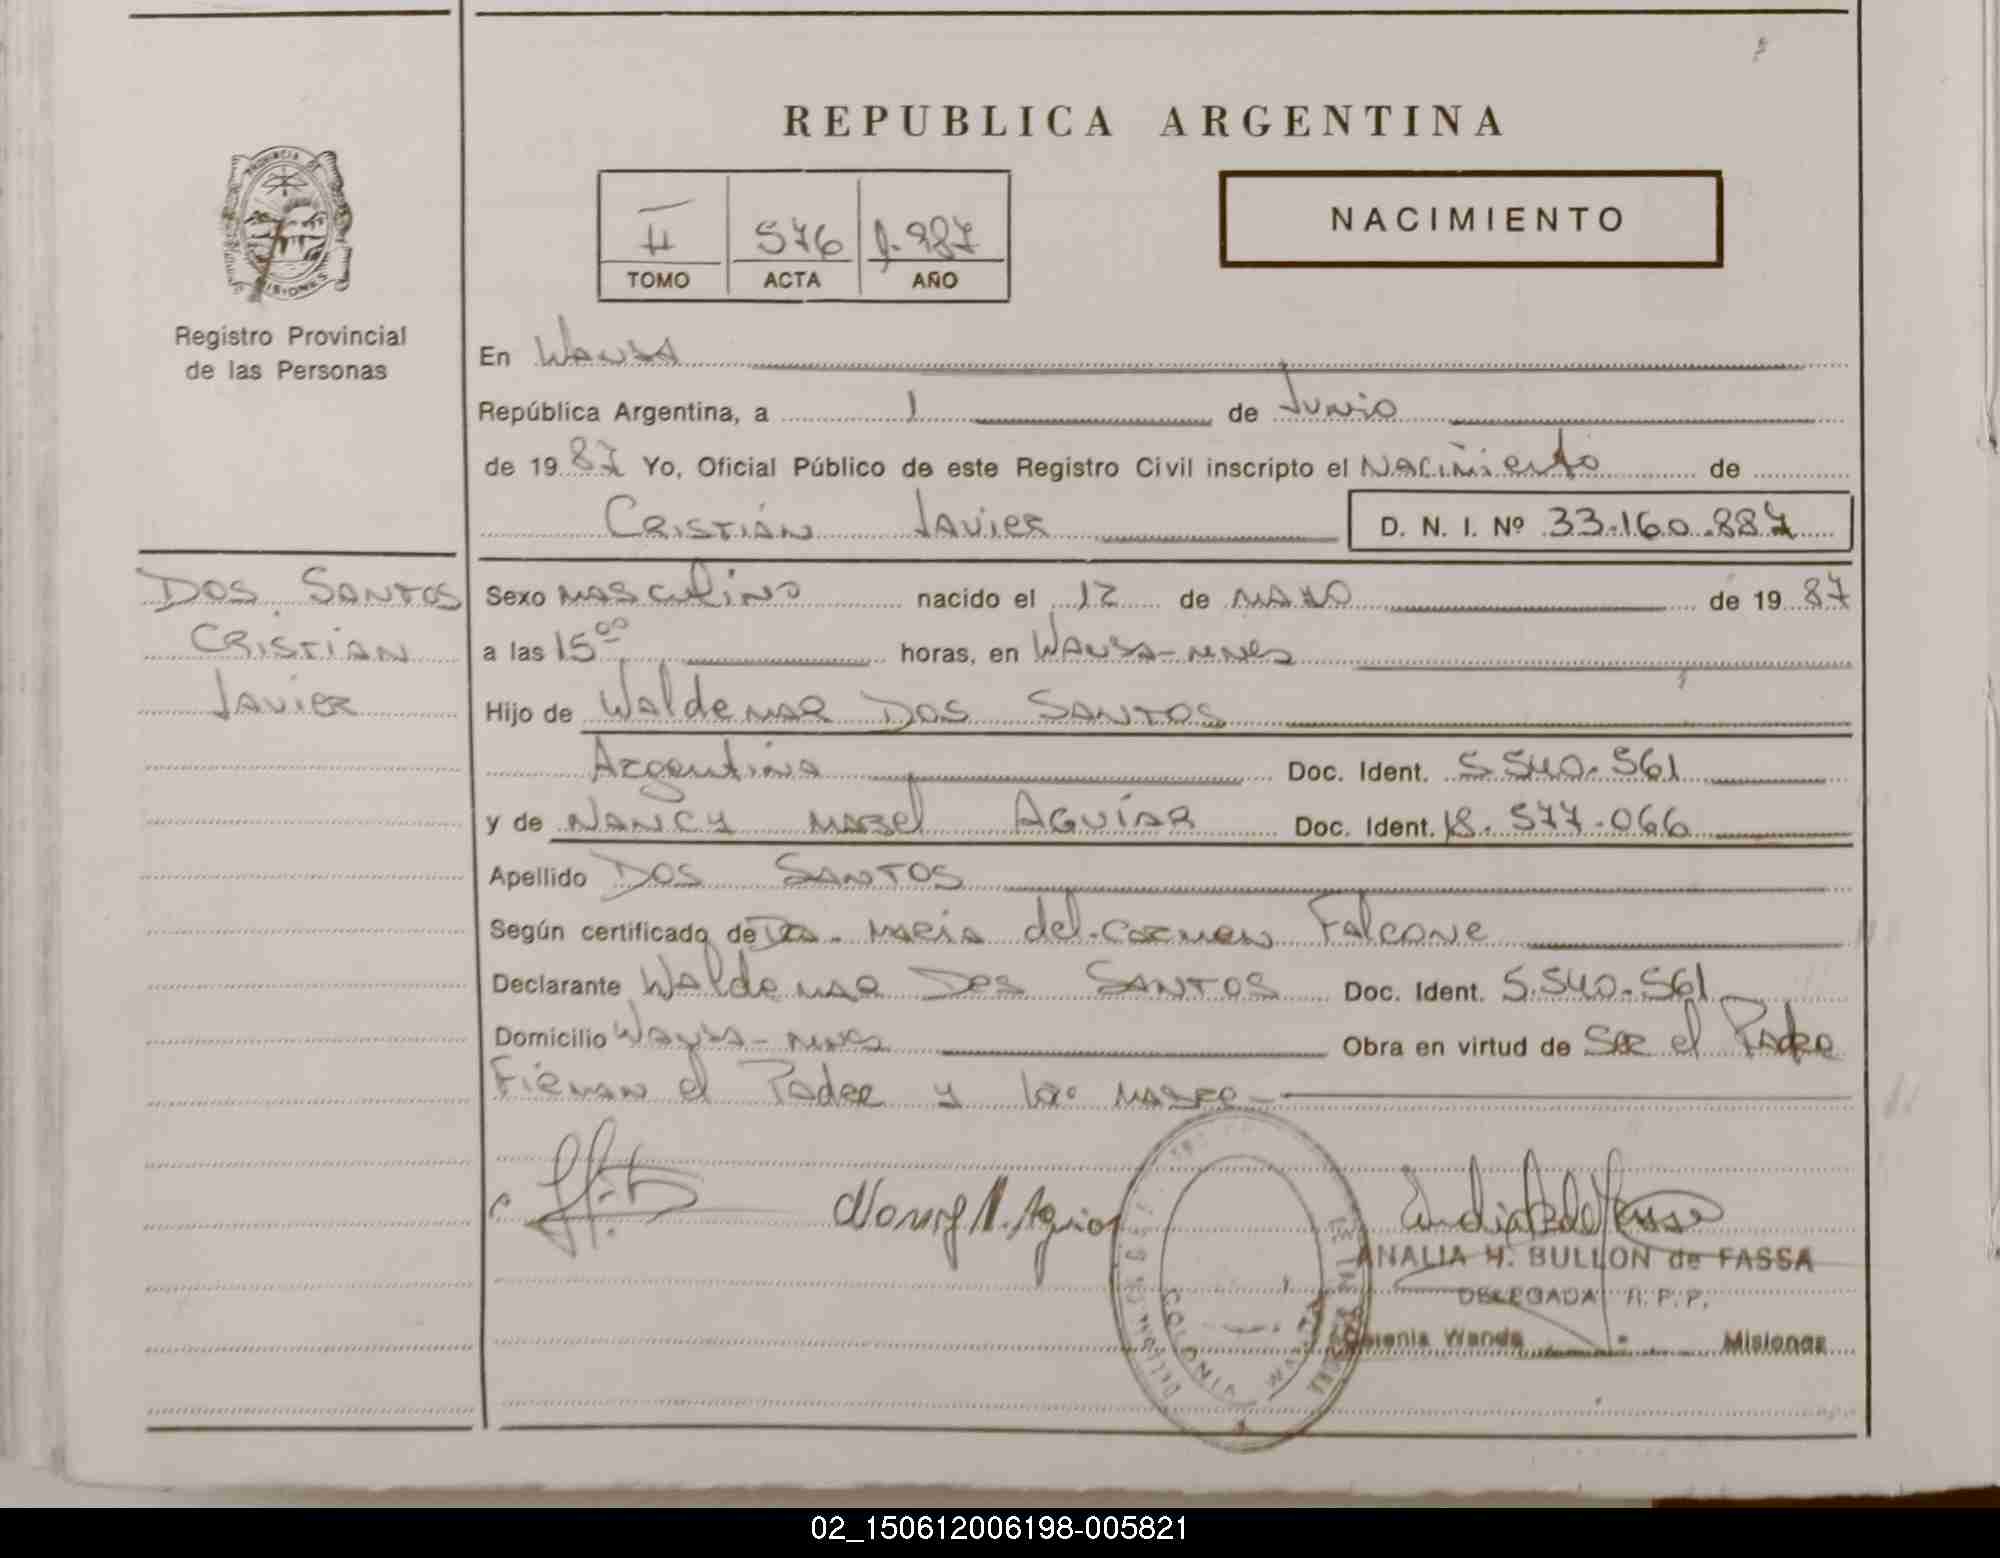 REPUBLICA ARGENTINA
PROVINCIA DE MISIONES
Registro Provincial
de las Personas
II 576 1.987
TOMO ACTA AÑO
NACIMIENTO
En Wanda
República Argentina, a 1 de Junio
de 1987 Yo, Oficial Público de este Registro Civil inscripto el Nacimiento de
Cristián Javier D. N. I. Nº 33.160.887
Dos Santos
Cristian
Javier
Sexo masculino nacido el 12 de mayo de 1987
a las 15⁰⁰ horas, en Wanda-mnes
Hijo de Waldemar Dos Santos
Argentina Doc. Ident. 5.540.561
y de Nancy Mabel Aguiar Doc. Ident. 18.577.066
Apellido Dos Santos
Según certificado de Dra. Maria del Carmen Falcone
Declarante Waldemar Dos Santos Doc. Ident. 5.540.561
Domicilio Wanda-mnes Obra en virtud de ser el Padre
Firman el Padre y la madre-
Nancy M. Aguiar
ANALIA H. BULLON de FASSA
DELEGADA R. P. P.
Colonia Wanda Misiones
COLONIA WANDA
02_150612006198-005821